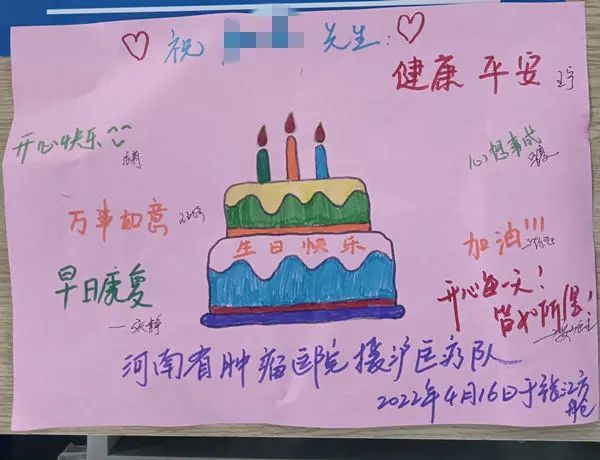 祝 先生：
健康 平安 王宁
开心快乐
心想事成
万事如意
加油!!!
生日快乐
早日康复
—张静
开心每一天！
皆如所愿！
河南省肿瘤医院援沪医疗队
2022年4月16日于张江方舱